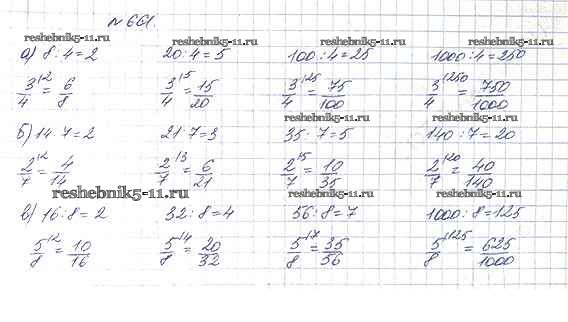 №661.
reshebnik5-11.ru reshebnik5-11.ru reshebnik5-11.ru reshebnik5-11.ru
а) 8:4=2 20:4=5 100:4=25 1000:4=250
3/4 \2 = 6/8 3/4 \5 = 15/20 3/4 \25 = 75/100 3/4 \250 = 750/1000
reshebnik5-11.ru reshebnik5-11.ru
б) 14:7=2 21:7=3 35:7=5 140:7=20
2/7 \2 = 4/14 2/7 \3 = 6/21 2/7 \5 = 10/35 2/7 \20 = 40/140
reshebnik5-11.ru reshebnik5-11.ru reshebnik5-11.ru
в) 16:8=2 32:8=4 56:8=7 1000:8=125
5/8 \2 = 10/16 5/8 \4 = 20/32 5/8 \7 = 35/56 5/8 \125 = 625/1000